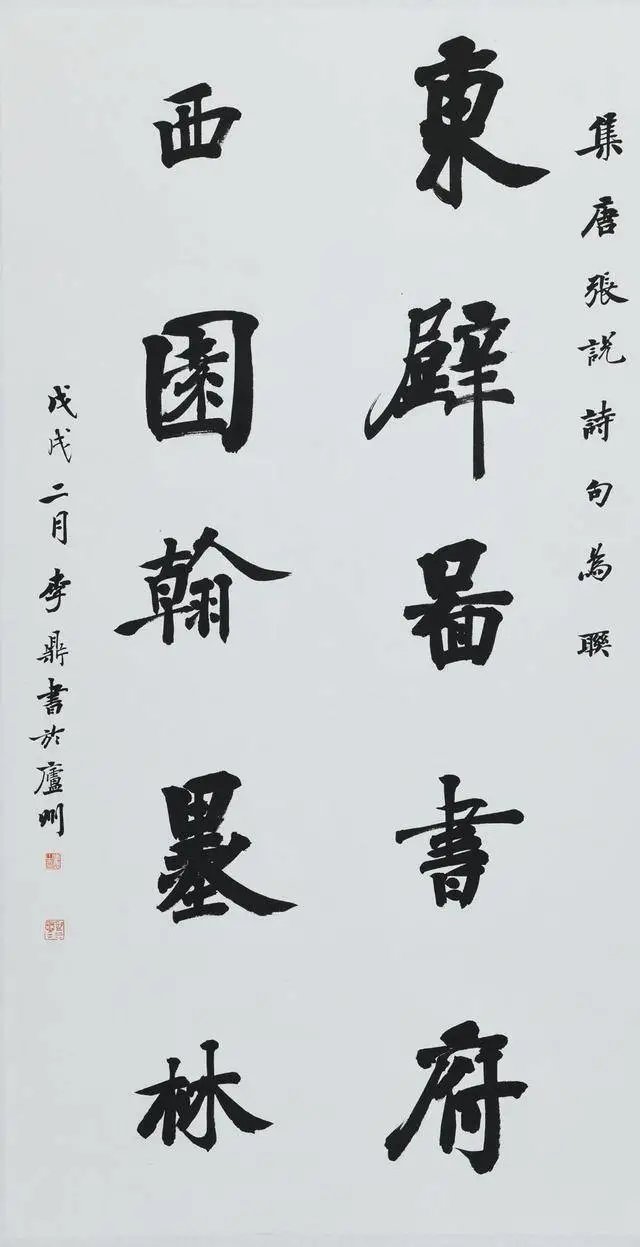 集唐張説詩句為聯
東壁啚書府
西園翰墨林
戊戌二月李鼎書於廬州